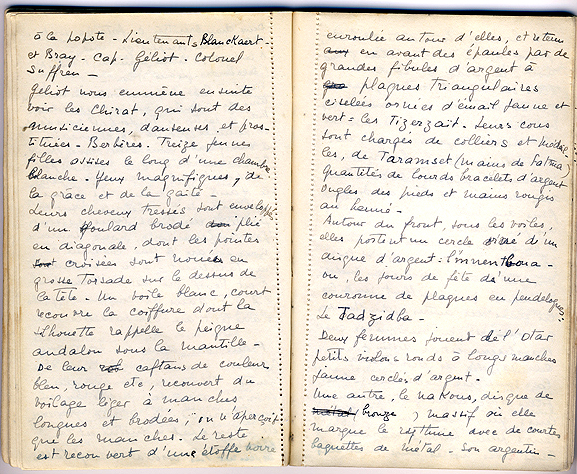 à la popote - Lieutenants Blanckaert -
et Bray - Cap. Géliot - Colonel
Suffren -
Géliot nous emmène ensuite
voir les Chirat, qui sont des
musiciennes, danseuses et pros-
tituées - Berbères. Treize jeunes
filles assises le long d'une chambre
blanche - Yeux magnifiques, de
la grâce et de la gaîté -
Leurs cheveux tressés sont enveloppés
d'un foulard brodé plié
en diagonale, dont les pointes
croisées sont nouées en
grosse torsade sur le dessus de
la tête - Un voile blanc, court
recouvre la coiffure dont la
silhouette rappelle le peigne
andalou sous la mantille -
De leur caftans de couleur
bleu, rouge etc, recouvert du
voilage léger à manches
longues et brodées, on n'aperçoit
que les manches. Le reste
est recouvert d'une étoffe noire
enroulée autour d'elles, et retenu
en avant des épaules par de
grandes fibules d'argent à
plaques triangulaires
ciselées ornées d'émail jaune et
vert = les Tizerzaït. Leurs cous
sont chargés de colliers et médail
les, de Taramset (mains de Fatma)
Quantités de lourds bracelets d'argent
Ongles des pieds et mains rougis
au henné -
Autour du front, sous les voiles,
elles portent un cercle d'un
disque d'argent :
ou, les jours de fête d'une
couronne de plaques en pendeloques :
Le Tadzidba -
Deux femmes jouent de l'Otar
petits violons ronds à longs manches
jaune cerclés d'argent -
Une autre, le nakous, disque de
bronze, massif où elle
marque le rythme avec de courtes
baguettes de métal - Son argentin -